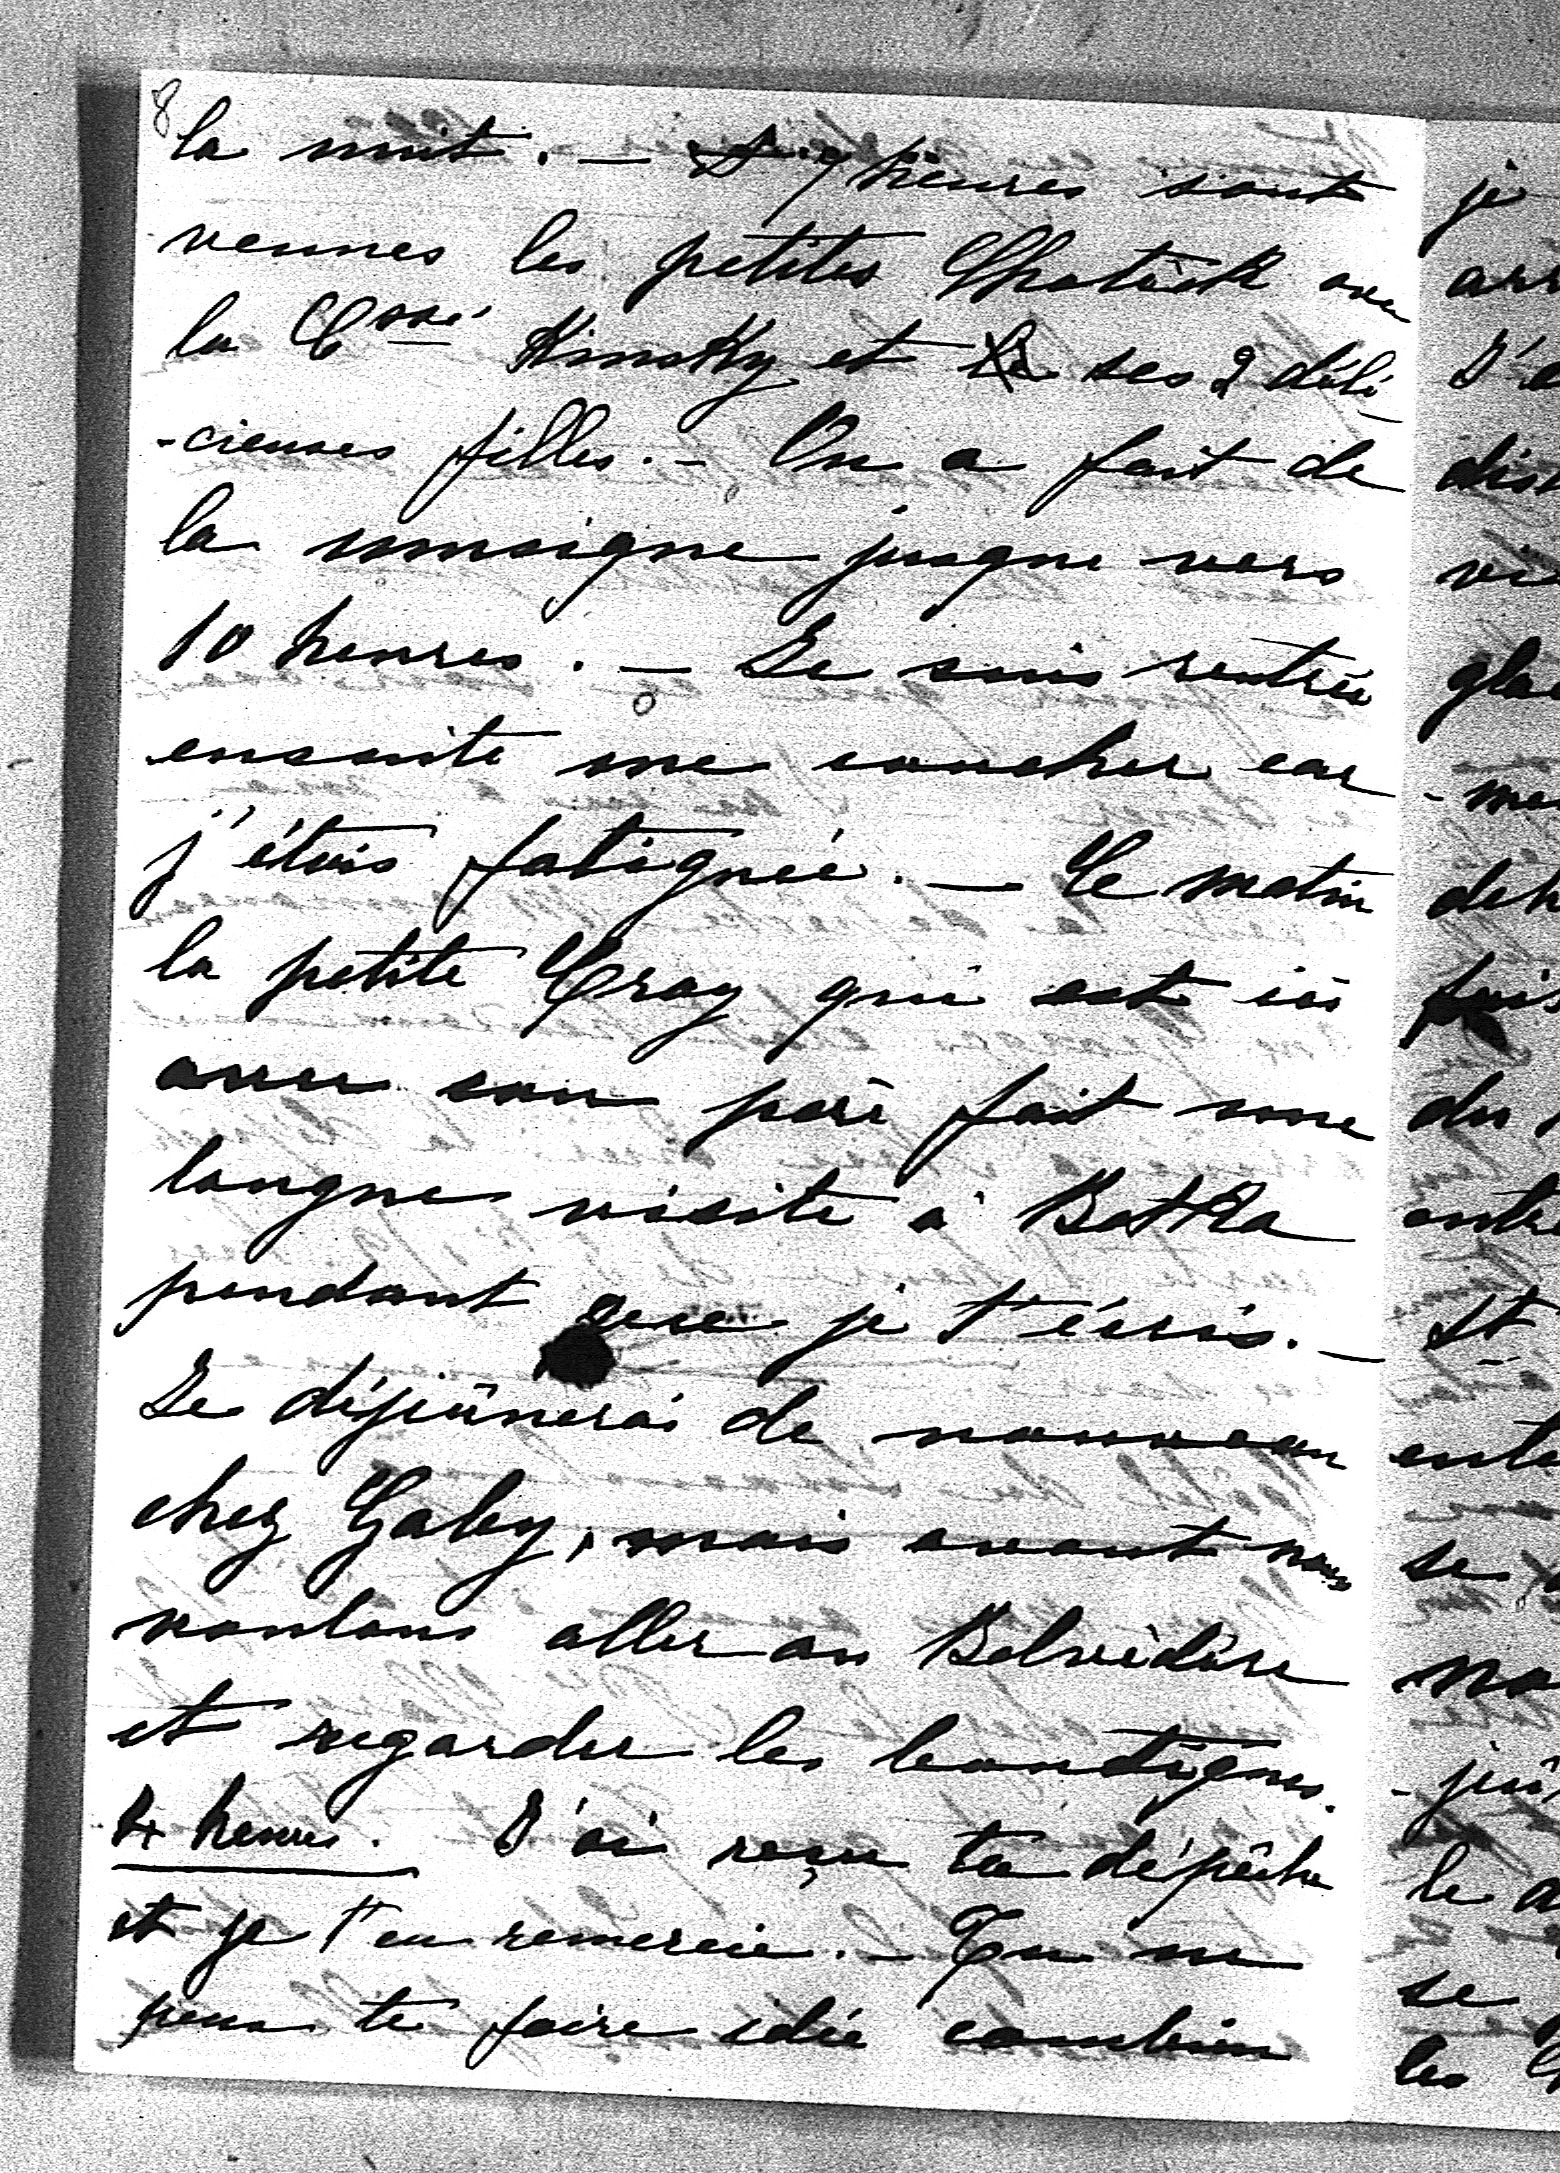 8
la nuit. — A 7 heures sont
venues les petites Chotück avec
la Csse Kinsky et ses 2 déli
-cieuses filles. — On a fait de
la musique jusque vers
10 heures. — Je suis rentrée
ensuite me coucher car
j'étais fatiguée. — Ce matin
la petite Cray qui est ici
avec son père fait une
longue visite à Botka
pendant que je t'écris. —
Je déjeûnerai de nouveau
chez Gaby, mais avant nous
voulons aller au Belvédère
et regarder les boutiques.
4 heures. J'ai reçu ta dépêche
et je t'en remercie. — Tu ne
peux te faire idée combien